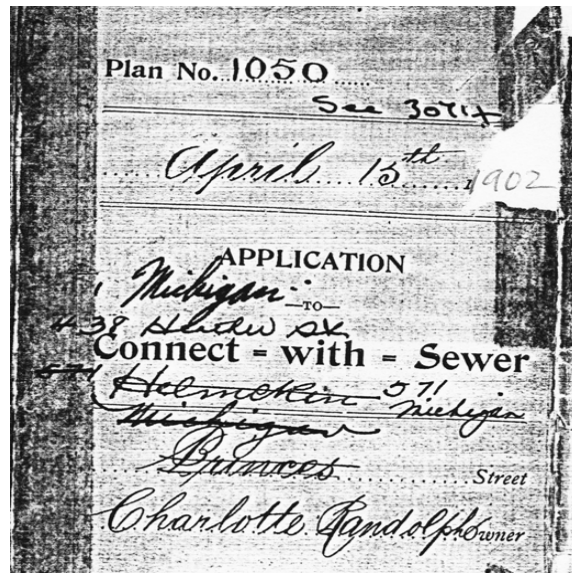 Plan No. 1050
See 3071X
April 15th 1902
APPLICATION
Michigan
—TO—
438 Heather St.
Connect = with = Sewer
571 Helmcken 571 Michigan
Michigan
Princes Street
Charlotte Randolph Owner